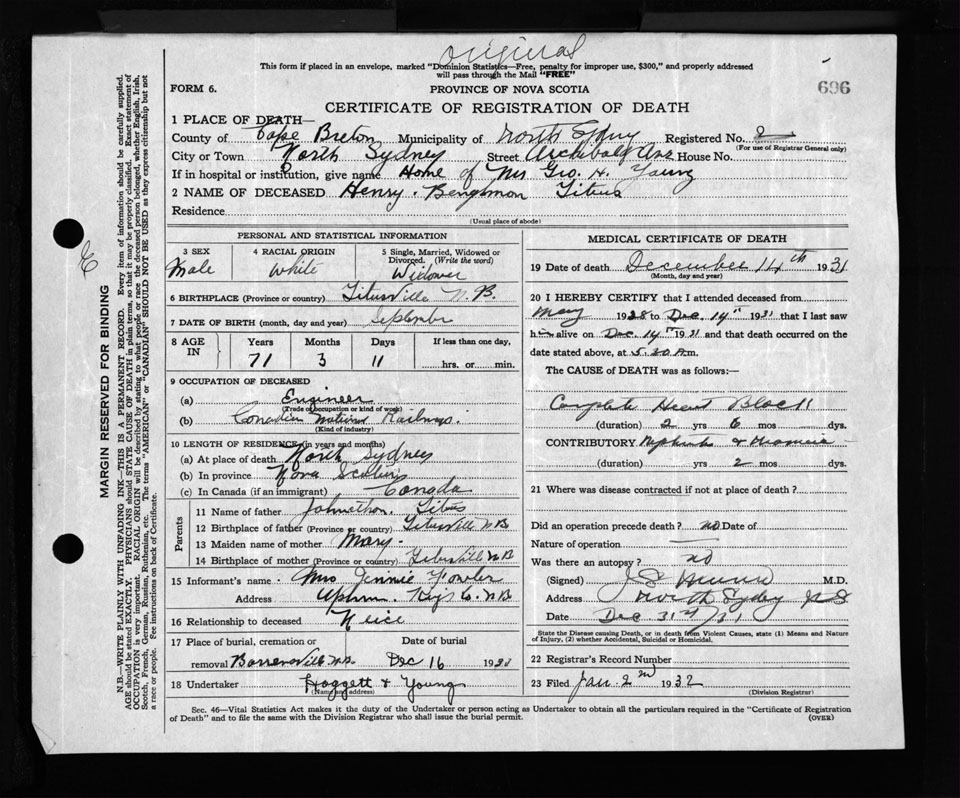 Original
This form if placed in an envelope, marked "Dominion Statistics—Free, penalty for improper use, $300," and properly addressed
will pass through the Mail "FREE"
696
FORM 6. PROVINCE OF NOVA SCOTIA
CERTIFICATE OF REGISTRATION OF DEATH
1 PLACE OF DEATH—
County of Cape Breton Municipality of North Sydney Registered No. 2
(For use of Registrar General only)
City or Town North Sydney Street Archibald Ave House No.
If in hospital or institution, give name Home of Mrs Geo. H. Young
2 NAME OF DECEASED Henry. Bengamon Titus
Residence
(Usual place of abode)
PERSONAL AND STATISTICAL INFORMATION
3 SEX 4 RACIAL ORIGIN 5 Single, Married, Widowed or Divorced. (Write the word)
Male White Widower
6 BIRTHPLACE (Province or country) Titusville N.B.
7 DATE OF BIRTH (month, day and year) September
8 AGE IN Years Months Days If less than one day,
71 3 11 hrs. or min.
9 OCCUPATION OF DECEASED
(a) Engineer
(Trade or occupation or kind of work)
(b) Canadian National Railways.
(Kind of industry)
10 LENGTH OF RESIDENCE (in years and months)
(a) At place of death North Sydney
(b) In province Nova Scotia
(c) In Canada (if an immigrant) Canada
Parents
11 Name of father Johnathon. Titus
12 Birthplace of father (Province or country) Titusville N B
13 Maiden name of mother Mary.
14 Birthplace of mother (Province or country) Titusville N B
15 Informant's name Mrs Jennie Fowler
Address Kings C. N B
16 Relationship to deceased Niece
17 Place of burial, cremation or Date of burial
removal N.B. Dec 16 1931
18 Undertaker Haggett & Young
(Name and address)
MEDICAL CERTIFICATE OF DEATH
19 Date of death December 14th 1931
(Month, day and year)
20 I HEREBY CERTIFY that I attended deceased from
May 1928 to Dec. 14th 1931 that I last saw
him alive on Dec. 14th 1931 and that death occurred on the
date stated above, at 5.30 A.m.
The CAUSE of DEATH was as follows:—
Complete Heart Block
(duration) 2 yrs 6 mos dys.
CONTRIBUTORY Nephritis & Uraemia
(duration) yrs 2 mos dys.
21 Where was disease contracted if not at place of death?
Did an operation precede death? no Date of
Nature of operation
Was there an autopsy? no
(Signed) M.D.
Address North Sydney N S
Date Dec 31st/31
State the Disease causing Death, or in death from Violent Causes, state (1) Means and Nature
of Injury, (2) whether Accidental, Suicidal or Homicidal.
22 Registrar's Record Number
23 Filed Jan 2nd 1932
(Division Registrar)
Sec. 46—Vital Statistics Act makes it the duty of the Undertaker or person acting as Undertaker to obtain all the particulars required in the "Certificate of Registration
of Death" and to file the same with the Division Registrar who shall issue the burial permit. (OVER)
MARGIN RESERVED FOR BINDING
N.B.—WRITE PLAINLY WITH UNFADING INK—THIS IS A PERMANENT RECORD. Every item of information should be carefully supplied.
AGE should be stated EXACTLY. PHYSICIANS should STATE CAUSE OF DEATH in plain terms, so that it may be properly classified. Exact statement of
OCCUPATION is very important. RACIAL ORIGIN will be described by stating to what people or race the deceased person belonged, whether English, Irish,
Scotch, French, German, Russian, Ruthenian, etc. The terms "AMERICAN" or "CANADIAN" SHOULD NOT BE USED as they express citizenship but not
a race or people. See instructions on back of Certificate.